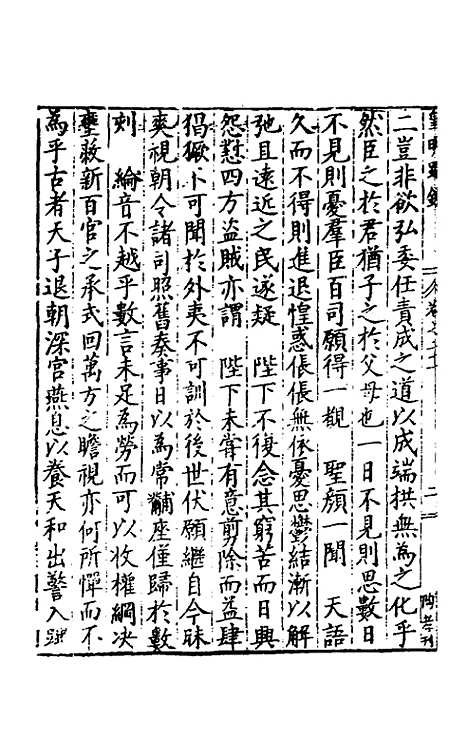 二豈非欲弘委任責成之道以成端拱無為之化乎
然臣之於君猶子之於父母也一日不見則思數日
不見則憂羣臣百司願得一覩　聖顏一聞　天語
久而不得則進退惶惑倀倀無依憂思鬱結漸以解
弛且遠近之民遂疑　陛下不復念其窮苦而日典
怨懟四方盜賊亦謂　陛下未嘗有意剪除而益肆
猖獗不可聞於外夷不可訓於後世伏願繼自今昧
爽視朝令諸司照舊奏事日以為常黼座僅歸於數
刻　綸音不越乎數言未足為勞而可以收權綱决
壅蔽新百官之承式回萬方之瞻視亦何所憚而不
為乎古者天子退朝深宮燕息以養天和出警入蹕